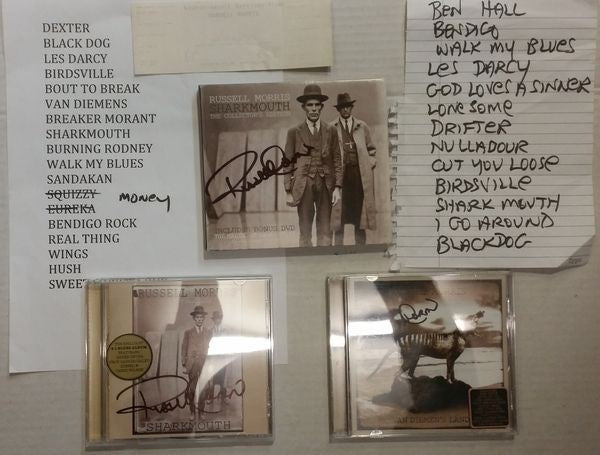 DEXTER
BLACK DOG
LES DARCY
BIRDSVILLE
BOUT TO BREAK
VAN DIEMENS
BREAKER MORANT
SHARKMOUTH
BURNING RODNEY
WALK MY BLUES
SANDAKAN
SQUIZZY
MONEY
EUREKA
BENDIGO ROCK
REAL THING
WINGS
HUSH
SWEET
BEN HALL
BENDIGO
WALK MY BLUES
LES DARCY
GOD LOVES A SINNER
LONESOME
DRIFTER
NULLADOUR
CUT YOU LOOSE
BIRDSVILLE
SHARK MOUTH
I GO AROUND
BLACKDOG
RUSSELL MORRIS
SHARKMOUTH
THE COLLECTOR'S EDITION
INCLUDES BONUS DVD
RUSSELL MORRIS
SHARKMOUTH
VAN DIEMEN'S LAND